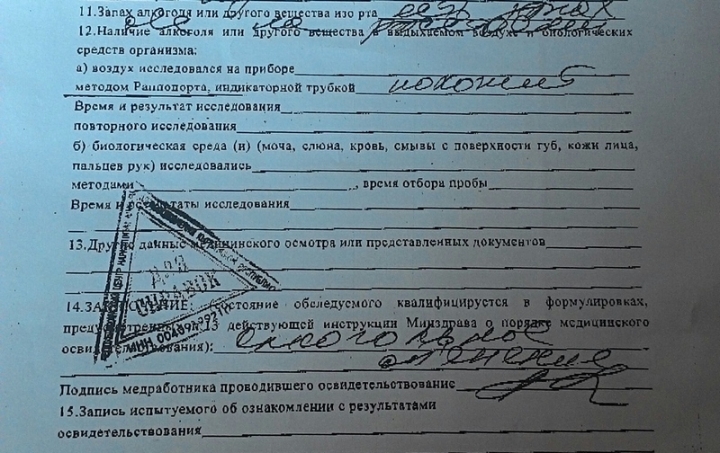 11.Запах алкоголя или другого вещества изо рта есть запах
12.Наличие алкоголя или другого вещества в выдыхаемом воздухе и биологических
средств организма:
а) воздух исследовался на приборе
методом Раппопорта, индикаторной трубкой
Время и результат исследования
повторного исследования
б) биологическая среда (и) (моча, слюна, кровь, смывы с поверхности губ, кожи лица,
пальцев рук) исследовались
методами , время отбора пробы
Время и результаты исследования
13.Другие данные медицинского осмотра или представленных документов
ДЛЯ
СПРАВОК
14.ЗАКЛЮЧЕНИЕ: Состояние обследуемого квалифицируется в формулировках,
предусмотренных п.13 действующей инструкции Минздрава о порядке медицинского
освидетельствования): алкогольное
опьянение
Подпись медработника проводившего освидетельствование
15.Запись испытуемого об ознакомлении с результатами
освидетельствования